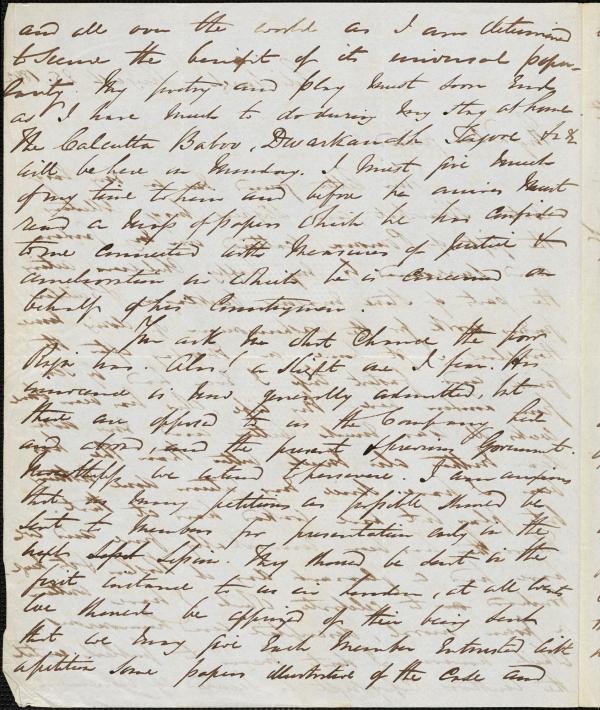 and all over the world as I am determined
to secure the benefit of its universal popu-
larity. My poetry and play must soon end,
as I have much to do during my stay at home.
The Calcutta Baboo, Dwarkanauth Tagore &c &c
will be here on Monday. I must give much
of my time to him and before he arrives must
read a mass of papers which he has confided
to me connected with measures of justice &
amelioration in which he is concerned on
behalf of his Countrymen.
You ask me what chance the poor
Raja has. Alas! a slight one I fear. His
innocence is now generally admitted, but
there are opposed to us the Company here
and abroad, and the present Government.
Nevertheless we intend to persevere. I am anxious
that as many petitions as possible should be
sent to Members for presentation early in the
next Session. They should be sent in the
first instance to us in London, at all events
we should be apprised of their being sent
that we may give each Member entrusted with
a petition some papers illustrative of the Case and